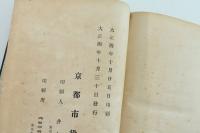 大正四年十月廿五日印刷
大正四年十月三十日發行
京都市役
印刷人
印刷所